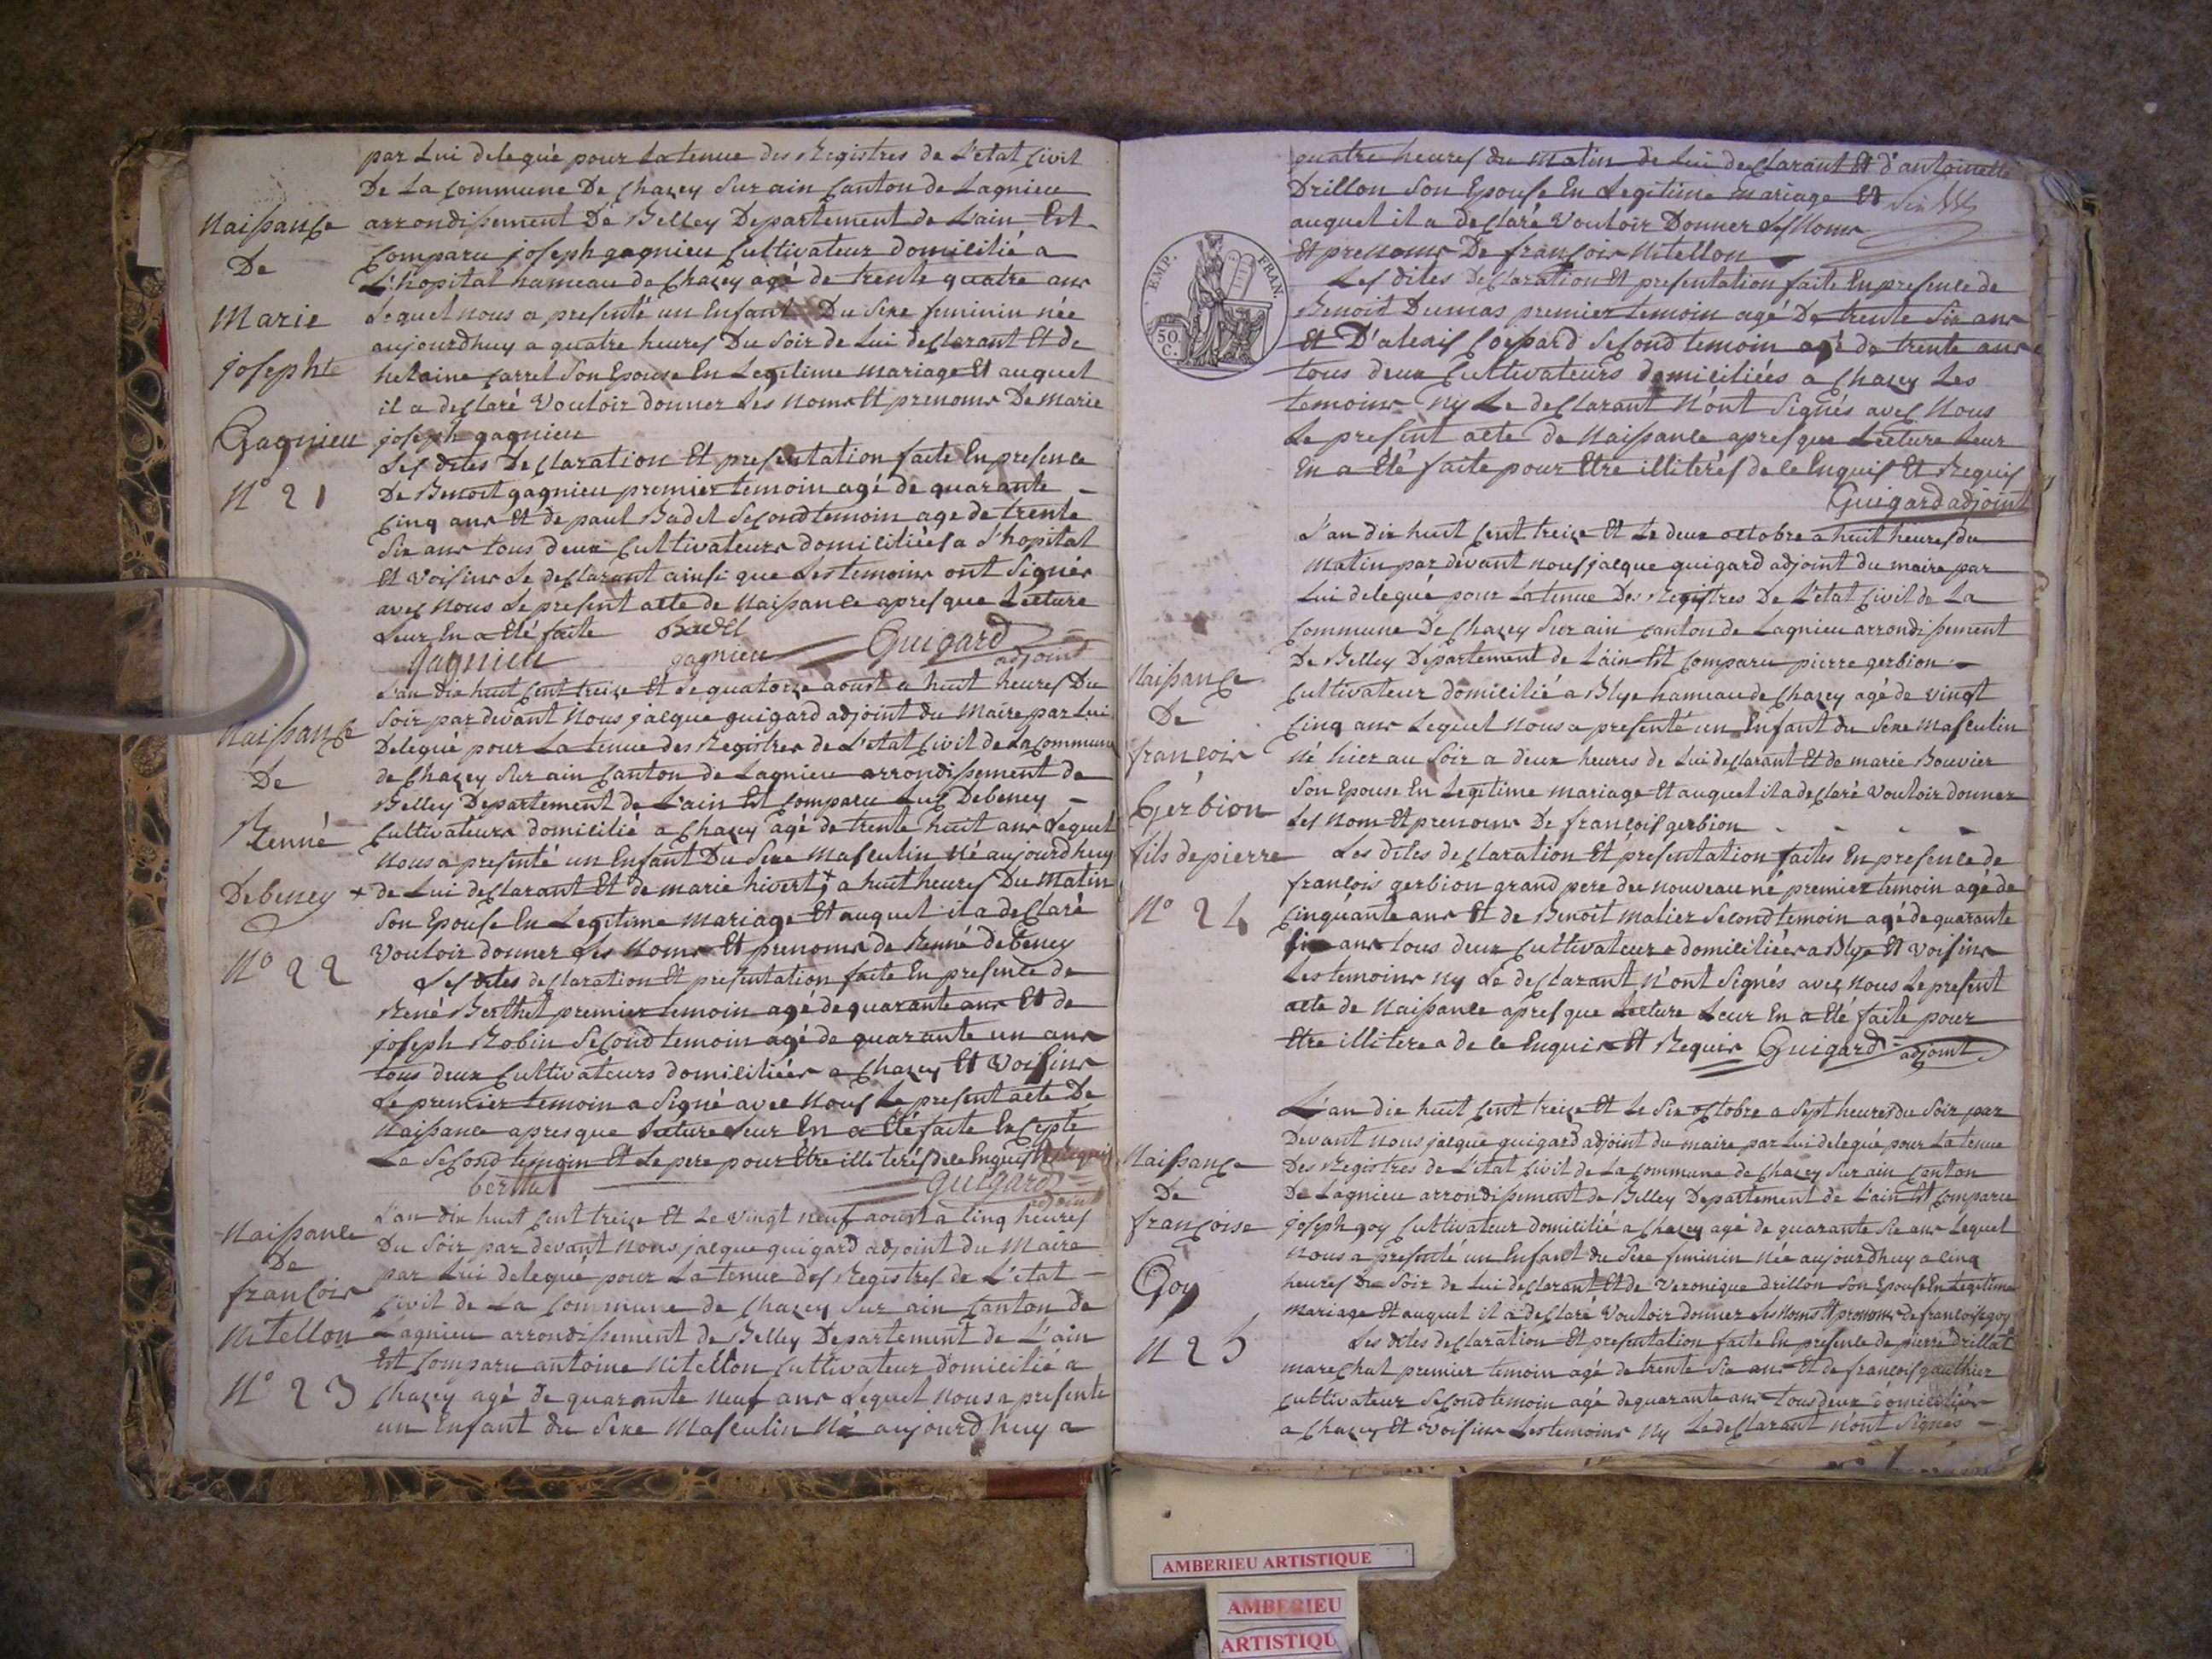 par Lui delegué pour La tenue des Registres de L'etat Civil
De La Commune De Chazey Sur ain Canton de Lagnieu
arrondissement De Belley Departement de L'ain Est
Comparu joseph gagnieu Cultivateur domicilié a
L'hopital hameau de Chazey agé de trente quatre ans
Lequel nous a presenté un Enfant Du Sexe feminin née
aujourdhuy a quatre heures Du Soir de Lui declarant Et de
helaine Carrel Son Epouse En Legitime mariage Et auquel
il a declaré Vouloir donner Les Noms Et prenoms De marie
joseph gagnieu
Les dites Declaration Et presentation faite En presence
De Benoit gagnieu premier temoin agé de quarante
Cinq ans Et de paul Badel Second temoin age de trente
Six ans tous deux Cultivateurs domiciliées a L'hopital
Et Voisins Le declarant ainsi que Les temoins ont Signer
avec Nous Le present acte de Naissance apres que Lecture
Leur En a Eté faite
Badel
gagnieu
gagnieu
Guigard
adjoint
Naissance
De
Marie
josephte
Gagnieu
N° 21
L'an dix huit Cent treize Et Le quatorze aoust a huit heures Du
Soir par devant Nous jacque guigard adjoint du Maire par Lui
Delegué pour La tenue des Registres de L'etat Civil de La Commune
de Chazey Sur ain Canton de Lagnieu arrondissement de
Belley Departement de L'ain Est Comparu Luc Debeney
Cultivateurs domicilié a Chazey agé de trente huit ans Lequel
Nous a presenté un Enfant Du Sexe Masculin Né aujourdhuy
+ de Lui declarant Et de marie hivert + a huit heures Du Matin
Son Epouse En Legitime mariage Et auquel il a declaré
Vouloir donner Les Noms Et prenoms de Renné debeney
Les dites declaration Et presentation faite En presence de
René Berthet premier temoin agé de quarante ans Et de
joseph Robin Second temoin agé de quarante un ans
tous deux Cultivateurs domiciliées a Chazey Et Voisins
Le premier temoin a Signé avec Nous Le present acte De
Naissance apres que Lecture Leur En a Eté faite Excepté
Le Second temoin Et Le pere pour Etre illiterés de ce Enquis Et Requis
berthet
Guigard
adjoint
Naissance
De
Renné
Debeney
N° 22
L'an dix huit Cent treize Et Le Vingt neuf aoust a Cinq heures
Du Soir par devant Nous jacque guigard adjoint du Maire
par Lui delegué pour La tenue des Registres de L'etat
Civil de La Commune de Chazey Sur ain Canton de
Lagnieu arrondissement de Belley Departement de L'ain
Est Comparu antoine Nitellon Cultivateur domicilié a
Chazey agé de quarante Neuf ans Lequel Nous a presenté
un Enfant du Sexe Masculin Né aujourd'huy a
Naissance
De
françois
Nitellon
N° 23
quatre heures du Matin de Lui declarant Et d'antoinette
Drillon Son Epouse En Legitime mariage Et
auquel il a declaré Vouloir Donner Les Noms
Et prenoms De françois Nitellon
Les dites Declaration Et presentation faite En presence de
Benoit Dumas premier temoin agé De trente Six ans
Et D'alexis Coispard Second temoin agé de trente ans
tous deux Cultivateurs domiciliées a Chazey Les
temoins Ny Le declarant N'ont Signés avec Nous
Le present acte de Naissance apres que Lecture Leur
En a Eté faite pour Etre illiterés de ce Enquis Et Requis
Guigard adjoint
EMP. FRAN.
50 C.
L'an dix huit Cent treize Et Le deux octobre a huit heures du
Matin par devant nous jacque guigard adjoint du maire par
Lui delegué pour La tenue Des Registres De L'etat Civil de La
Commune De Chazey Sur ain Canton de Lagnieu arrondissement
De Belley Departement de L'ain Est Comparu pierre gerbion
Cultivateur domicilié a Blye hameau de Chazey agé de vingt
Cinq ans Lequel Nous a presenté un Enfant du Sexe Masculin
Né hier au Soir a deux heures de Lui declarant Et de marie Bouvier
Son Epouse En Legitime mariage Et auquel il a declaré Vouloir donner
Les Nom Et prenoms De françois gerbion
Les dites declaration Et presentation faites En presence de
françois gerbion grand pere du nouveau né premier temoin agé de
Cinquante ans Et de Benoit Malier Second temoin agé de quarante
Six ans tous deux Cultivateurs domiciliées a Blye Et Voisins
Les temoins Ny Le declarant N'ont Signés avec Nous Le present
acte de Naissance apres que Lecture Leur En a Eté faite pour
Etre illiteres de ce Enquis Et Requis Guigard adjoint
Naissance
De
françois
Gerbion
fils de pierre
N° 24
L'an dix huit Cent treize Et Le Six octobre a Sept heures du Soir par
Devant nous jacque guigard adjoint du maire par Lui delegué pour La tenue
Des Registres de L'etat Civil de La Commune de Chazey Sur ain Canton
De Lagnieu arrondissement de Belley Departement de L'ain Est Comparu
joseph goy Cultivateur domicilié a Chazey agé de quarante Six ans Lequel
Nous a presenté un Enfant du Sexe feminin Née aujourdhuy a Cinq
heures Du Soir de Lui declarant Et de Veronique drillon Son Epouse En Legitime
mariage Et auquel il a declaré Vouloir donner Les Noms Et prenoms de françoise goy
Les dites declaration Et presentation faite En presence de pierre Drillat
marechal premier temoin agé de trente Six ans Et de françois gauthier
Cultivateur Second temoin agé de quarante ans tous deux domiciliées
a Chazey Et Voisins Les temoins Ny Le declarant N'ont Signés
Naissance
De
françoise
Goy
N 25
AMBERIEU ARTISTIQUE
AMBERIEU
ARTISTIQU